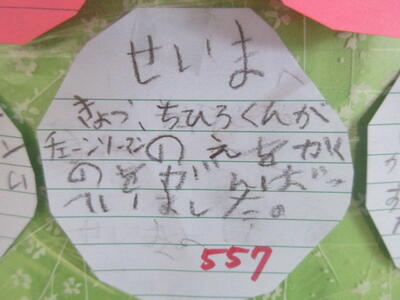 せいまへ
きょう、ちひろくんが
チェーンソーマンのえをかく
のをがんばっ
ていました。
557